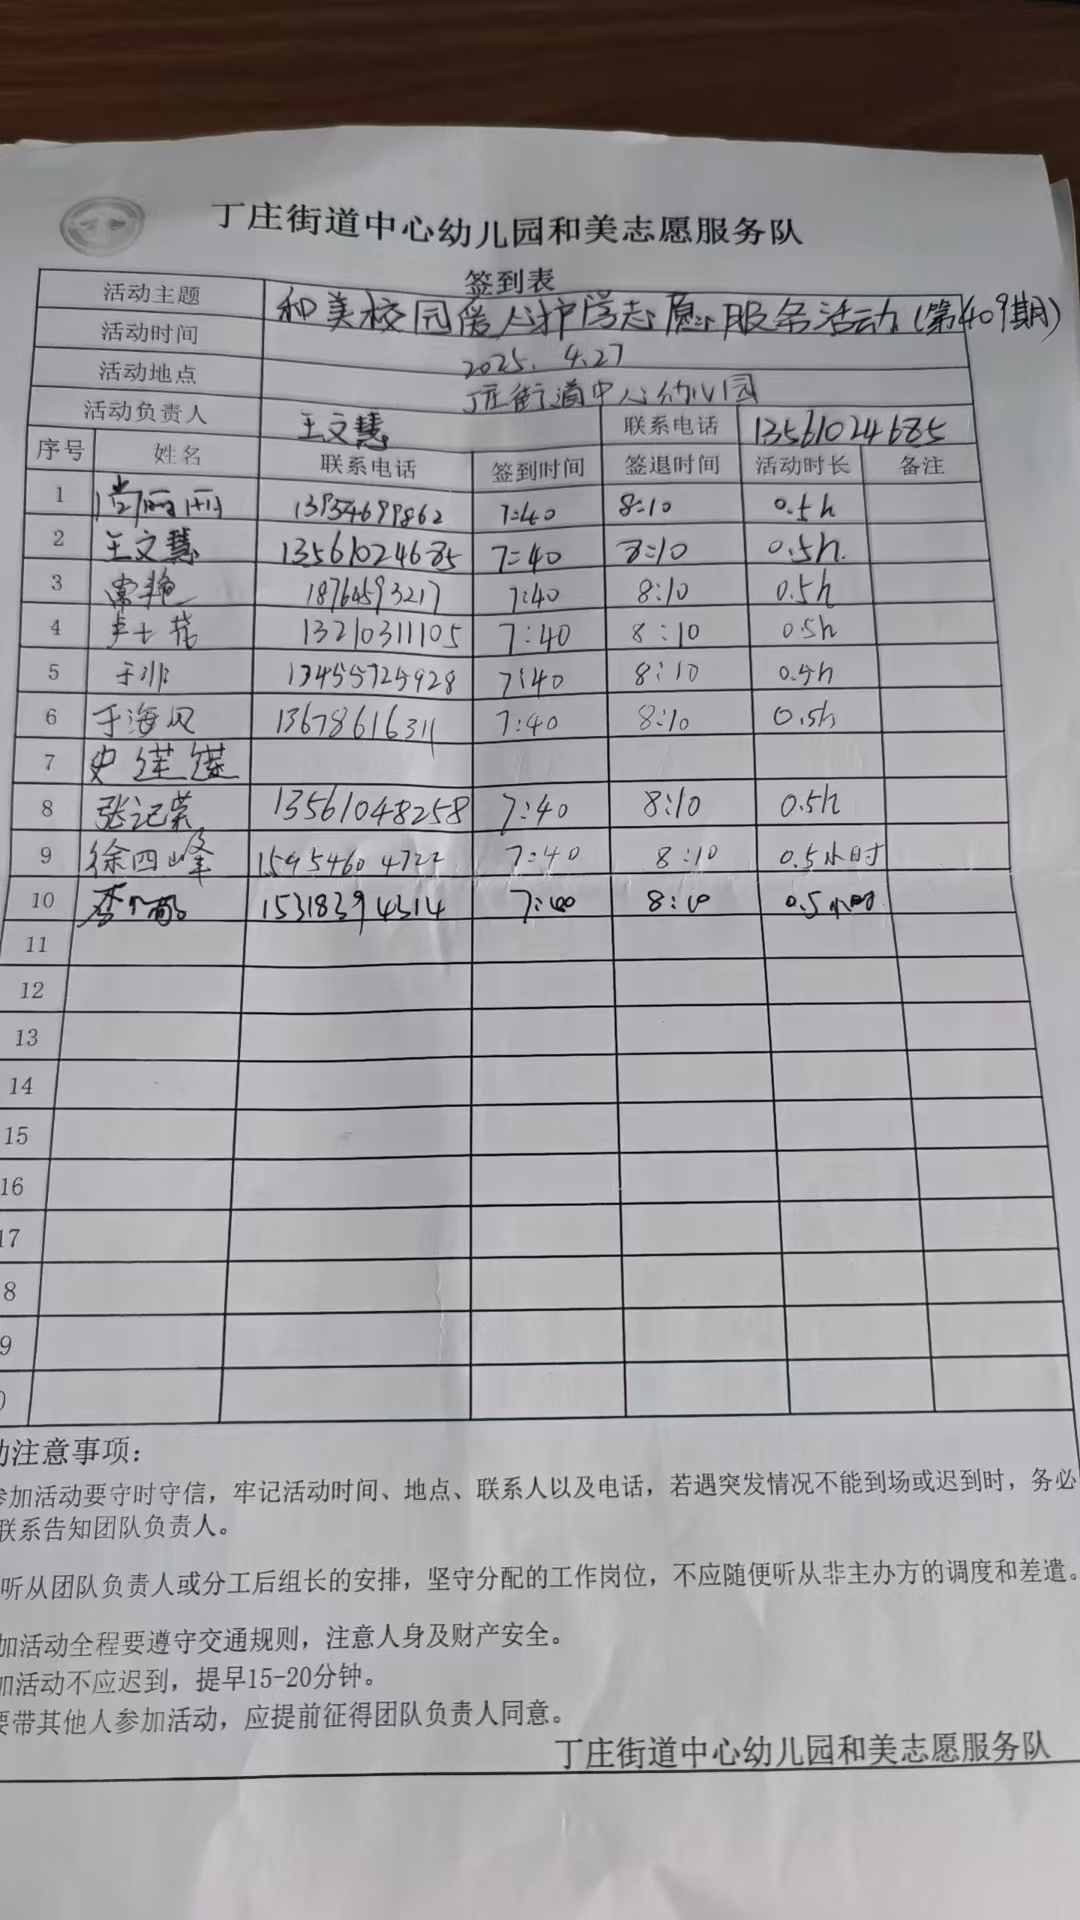 丁庄街道中心幼儿园和美志愿服务队
签到表
活动主题 和美校园爱心护学志愿服务活动(第409期)
活动时间 2025.4.27
活动地点 丁庄街道中心幼儿园
活动负责人 王文慧 联系电话 13561024685
序号 姓名 联系电话 签到时间 签退时间 活动时长 备注
1 7:40 8:10 0.5h
2 王文慧 13561024685 7:40 8:10 0.5h.
3 常艳 18764593217 7:40 8:10 0.5h
4 13210311105 7:40 8:10 0.5h
5 于非 13455725928 7:40 8:10 0.5h
6 于海风 13678616311 7:40 8:10 0.5h
7 史莲莲
8 张记荣 13561048258 7:40 8:10 0.5h
9 徐四峰 15954604722 7:40 8:10 0.5小时
10 15318394314 7:40 8:10 0.5小时
11
12
13
14
15
16
17
8
9
动注意事项:
参加活动要守时守信，牢记活动时间、地点、联系人以及电话，若遇突发情况不能到场或迟到时，务必
联系告知团队负责人。
听从团队负责人或分工后组长的安排，坚守分配的工作岗位，不应随便听从非主办方的调度和差遣。
加活动全程要遵守交通规则，注意人身及财产安全。
加活动不应迟到，提早15-20分钟。
要带其他人参加活动，应提前征得团队负责人同意。
丁庄街道中心幼儿园和美志愿服务队